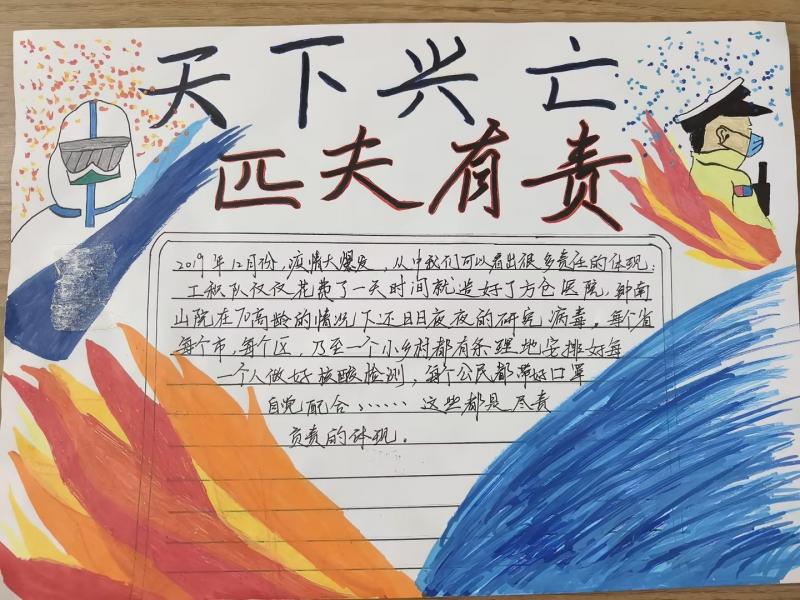 天下兴亡
匹夫有责
2019年12月份，疫情大爆发，从中我们可以看出很多责任的体现：
工程队仅仅花费了一天时间就造好了方仓医院，钟南
山院在70高龄的情况下还日日夜夜的研究病毒。每个省
每个市，每个区，乃至一个小乡村都有条理地安排好每
一个人做好核酸检测，每个公民都带好口罩
自觉配合、……这些都是尽责
负责的体现。